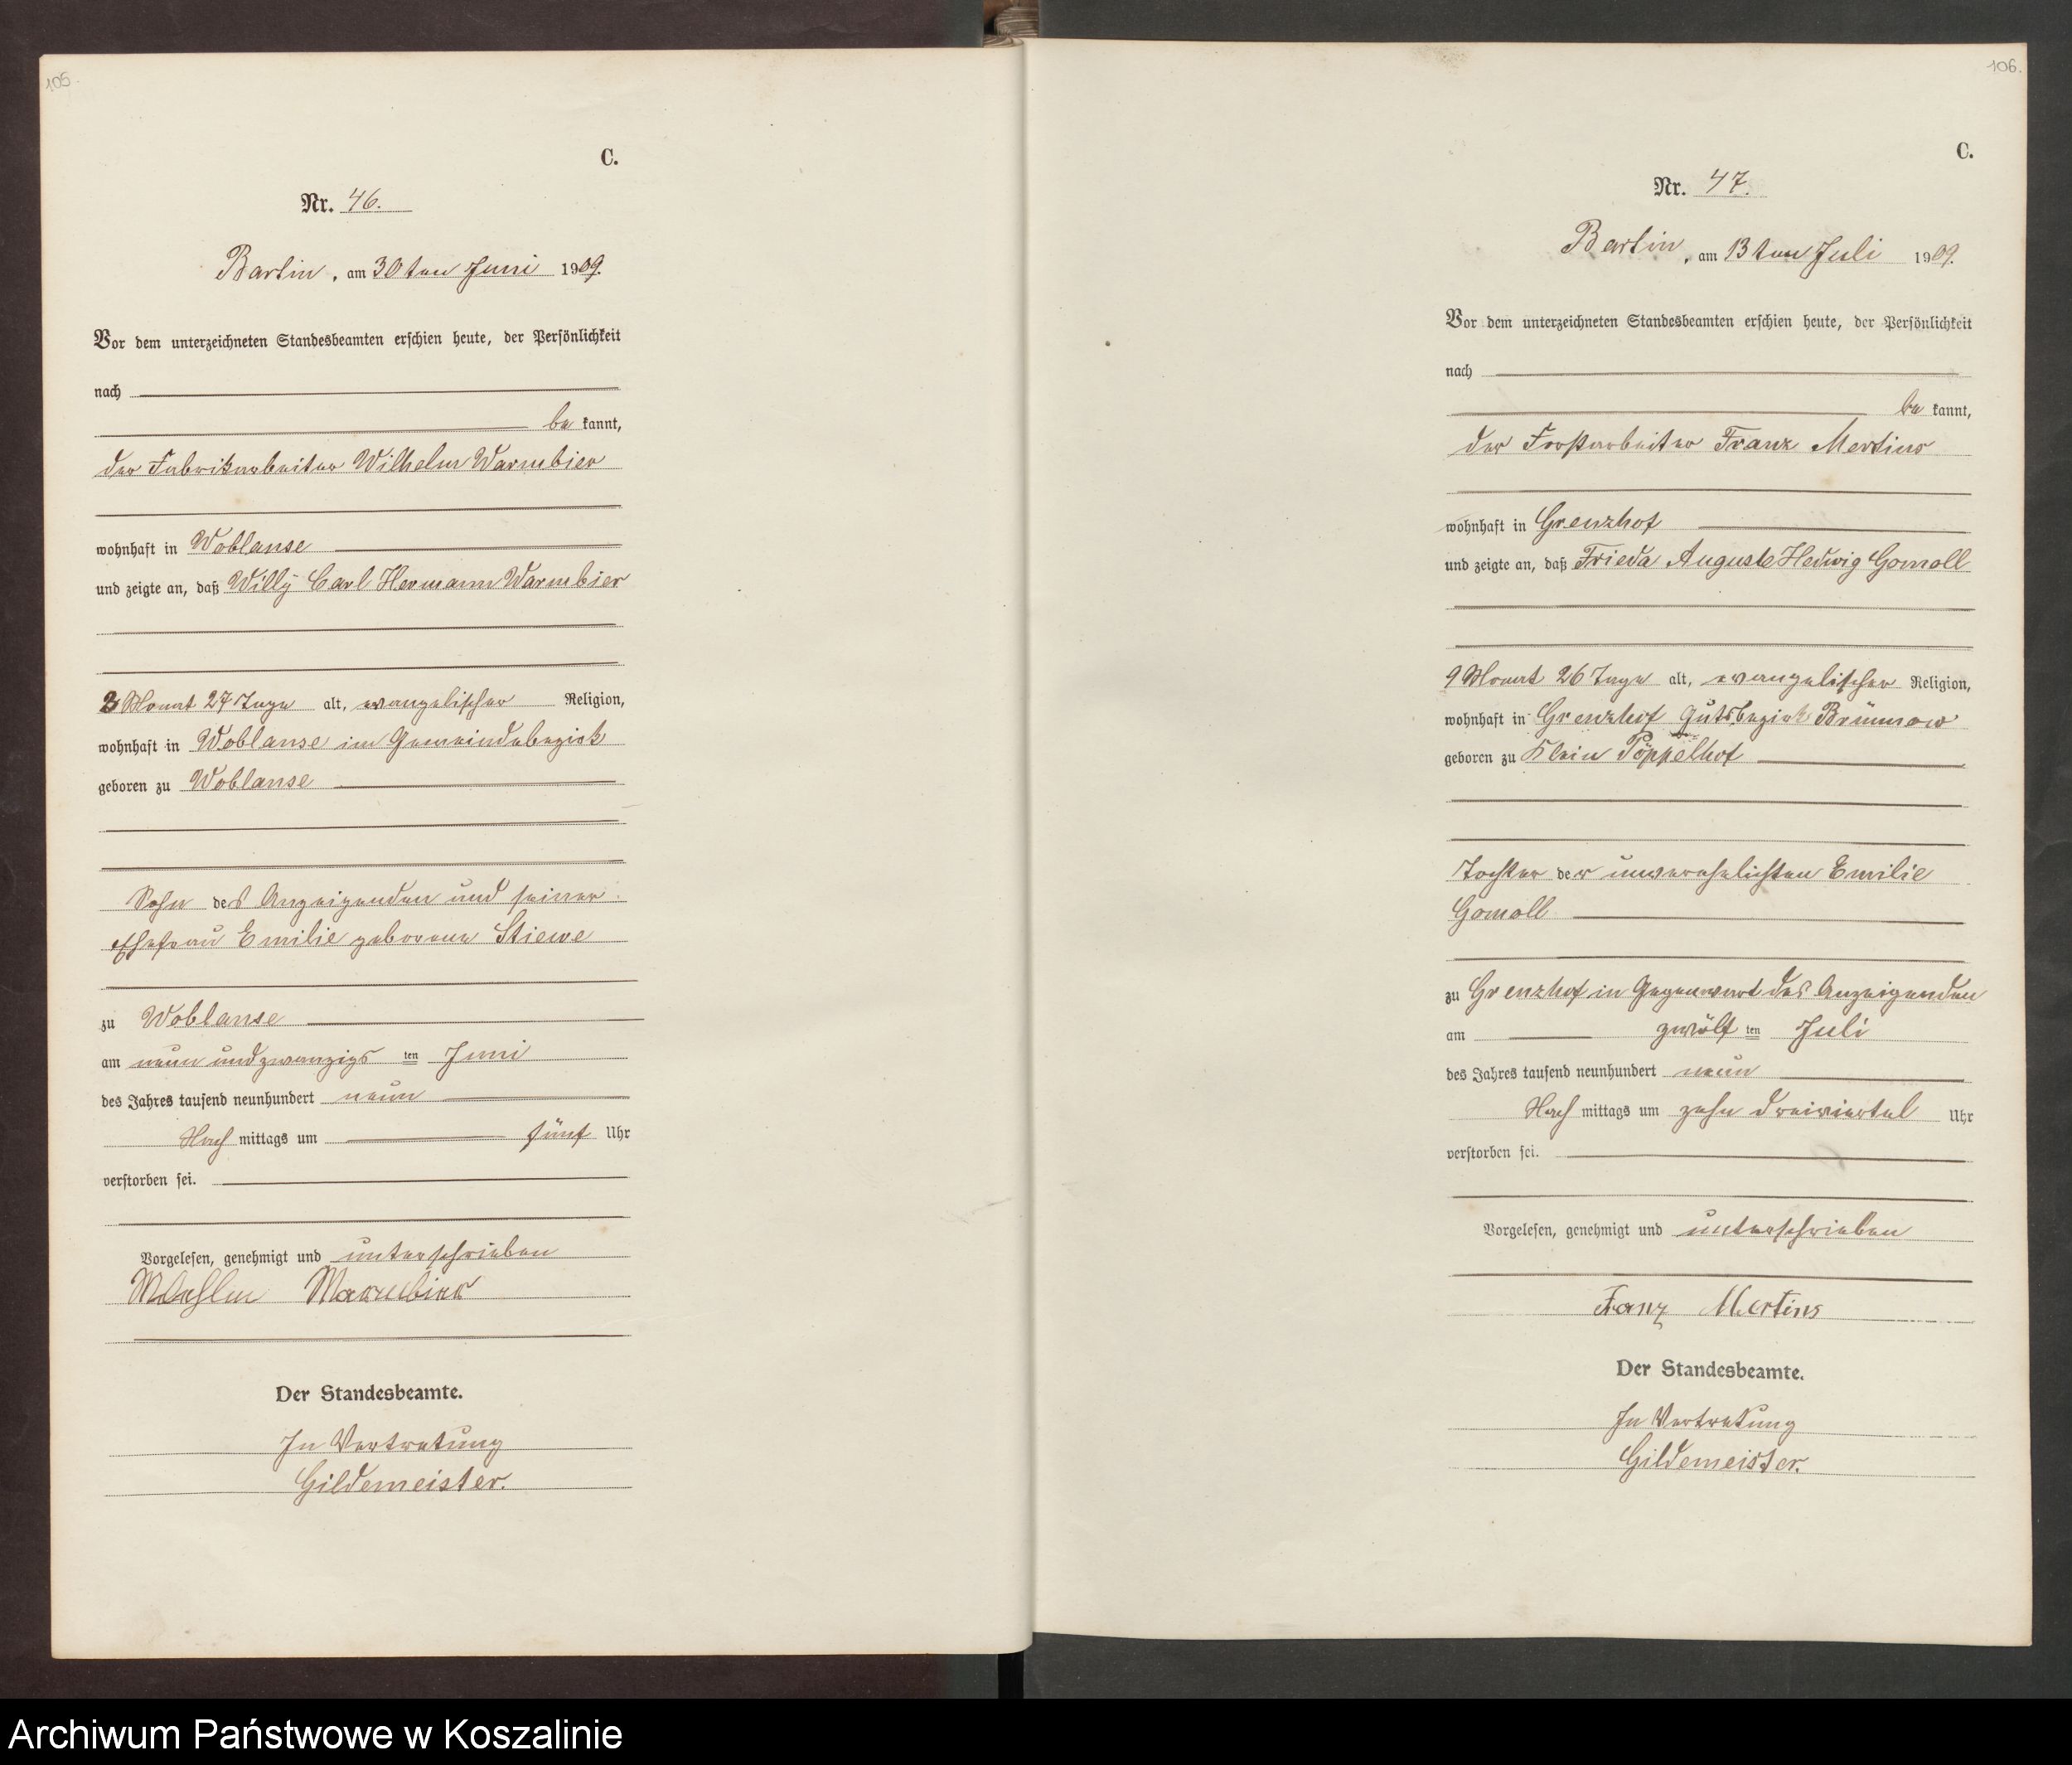 105.
C.
Nr. 46.
Bartin, am 30ten Juni 1909.
Vor dem unterzeichneten Standesbeamten erschien heute, der Persönlichkeit
nach
be kannt,
der Fabrikarbeiter Wilhelm Warmbier
wohnhaft in Woblanse
und zeigte an, daß Willy Carl Hermann Warmbier
3 Monat 27 Tage alt, evangelischer Religion,
wohnhaft in Woblanse im Gemeindebezirk
geboren zu Woblanse
Sohn des Anzeigenden und seiner
Ehefrau Emilie geborene Stiewe
zu Woblanse
am neun und zwanzigs ten Juni
des Jahres tausend neunhundert neun
Nach mittags um fünf Uhr
verstorben sei.
Vorgelesen, genehmigt und unterschrieben
Warmbier
Der Standesbeamte.
In Vertretung
Gildemeister.
106.
C.
Nr. 47.
Bartin, am 13ten Juli 1909.
Vor dem unterzeichneten Standesbeamten erschien heute, der Persönlichkeit
nach
be kannt,
der Forstarbeiter Franz Mertins
wohnhaft in Grenzhof
und zeigte an, daß Frieda Auguste Hedwig Gomoll
9 Monat 26 Tage alt, evangelischer Religion,
wohnhaft in Grenzhof Gutsbezirk Brünnow
geboren zu Klein Pöppelhof
Tochter der unverehelichten Emilie
Gomoll
zu Grenzhof in Gegenwart des Anzeigenden
am zwölf ten Juli
des Jahres tausend neunhundert neun
Nach mittags um zehn dreiviertel Uhr
verstorben sei.
Vorgelesen, genehmigt und unterschrieben
Franz Mertins
Der Standesbeamte.
In Vertretung
Gildemeister.
Archiwum Państwowe w Koszalinie